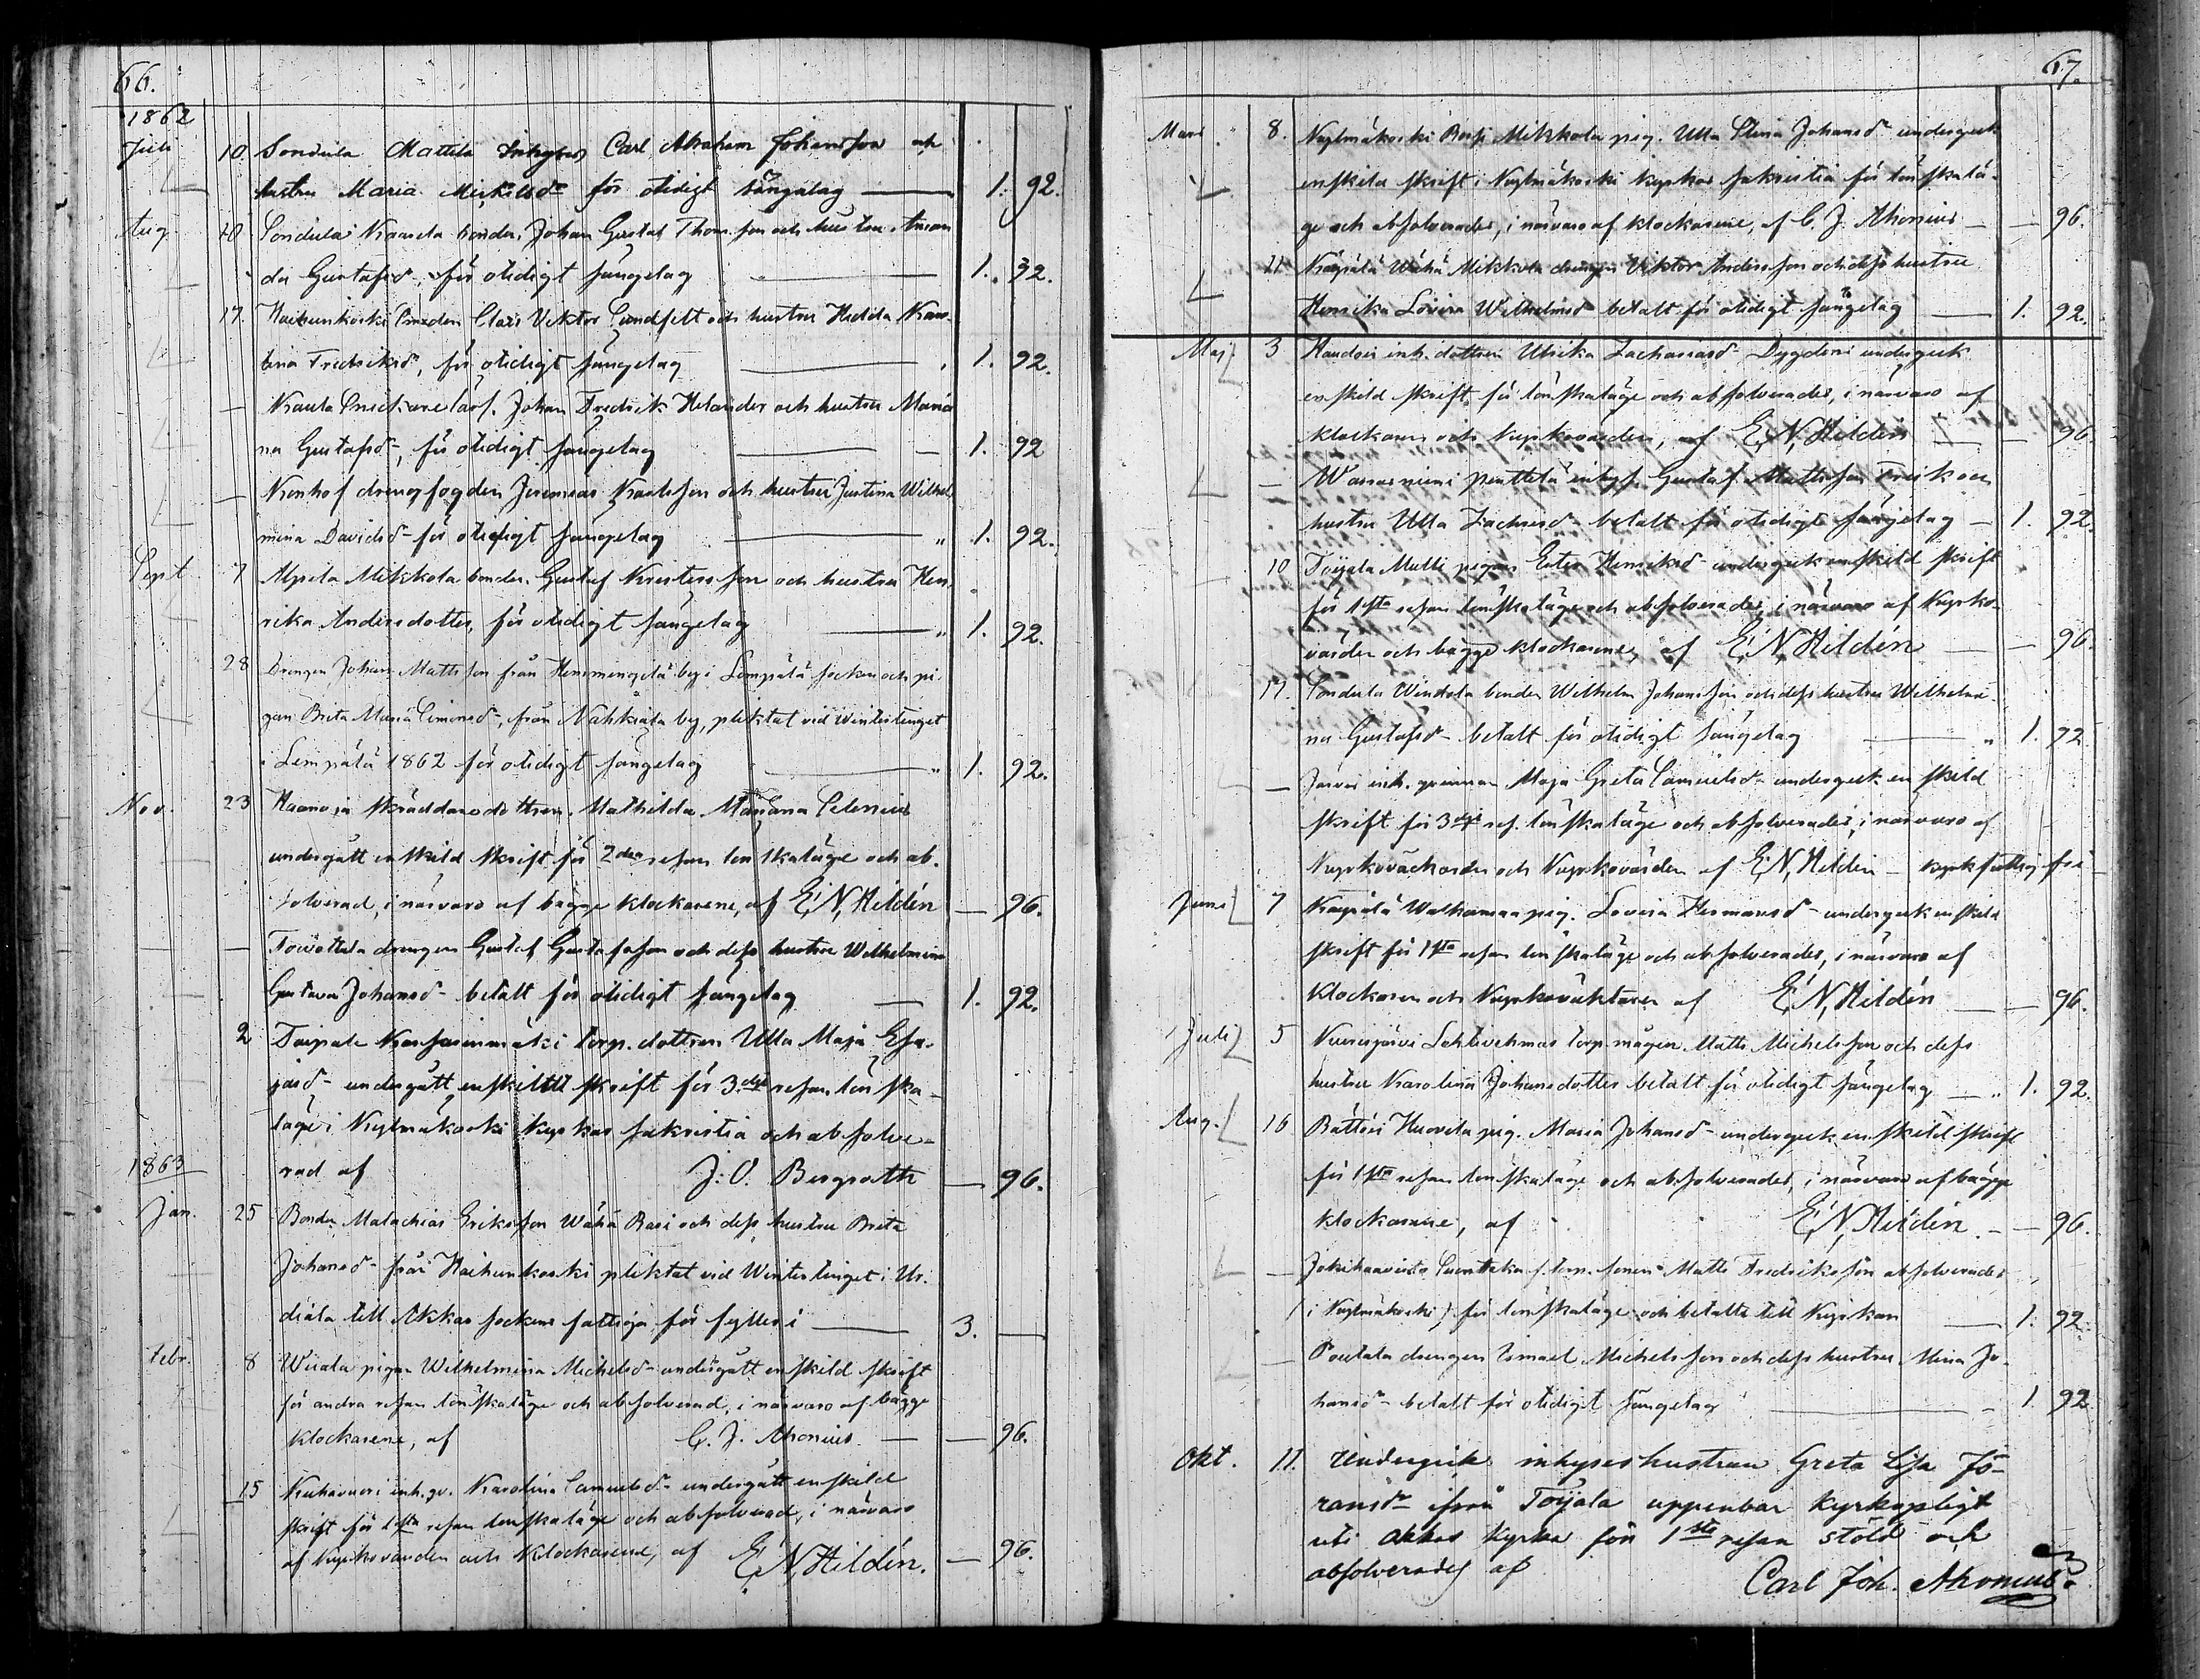 66.
1862
Juli 10. Sondula Mattila Inhyses Carl Abraham Johansson och
hustru Maria Michelsdr för otidigt sängelag — 1. 92.
Aug. 10 Sondula Kaarela bonden Johan Gustaf Thomsson och hustru Aman
da Gustafsd., för otidigt sängelag — 1. 92.
17. Haihunkoski Smeden Claës Viktor Lundfelt och hustru Hedda Karo
lina Fredriksdr, för otidigt sängelag — 1. 92.
— Snickare Johan Fredrik Helander och hustru Maria
na Gustafsd-, för otidigt sängelag — 1. 92
— drengfogden Jeremias Karlsson och hustru Justina Wilhel
mina Davidsd- för otidigt sängelag — " 1. 92.
Sept. 7 Mikkola bonden Gustaf Kristersson och hustru Hen
rika Andersdotter, för otidigt sängelag — " 1. 92.
28 Drengen Johan Mattsson från by i Lempälä socken och pi-
gan Brita Maria Simonsd-, från Nahkiala by, pliktat vid Wintertinget
i Lempälä 1862 för otidigt sängelag — " 1. 92.
Nov. 23 skräddaredottren Mathilda Mariana Selenius
undergått enskild skrift för 2dra resan lönskaläge och ab-
solverad, i närvaro af bägge klockarene, af E. N. Hildén — 96.
— drengen Gustaf Gustafsson och dess hustru Wilhelmina
Gustava Johansd- betalt för otidigt sängelag — 1. 92.
2 Taipale torp. dottren Ulla Maja Esa-
iasd- undergått enskildt skrift för 3.dje resan lönska-
läge i Kylmäkoski kyrkas sakristia och absolve-
rad af J: O. Bergroth — 96.
1863
Jan. 25 Bonden Malachias Eriksson Wähä Rasi och dess hustru Brita
Johansd- från Haihunkoski pliktat vid Wintertinget i Ur-
diala till Akkas sockens fattiga för fylleri — 3. —
Febr. 8 Wiiala pigan Wilhelmina Michelsd- undergått enskild skrift
för andra resan lönskaläge och absolverad, i närvaro af bägge
klockarene, af C. J. Ahonius — 96.
15 inh. Karolina Samuelsd- undergått enskild
skrift för 1sta resan lönskaläge och absolverad, i närvaro
af Kyrkovärden och Klockarene, af E. N. Hildén. — 96.
67.
Mars 8. Kylmäkoski Mikkola pig. Ulla Stina Johansdr undergick
enskild skrift i Kylmäkoski kyrkas sakristia för lönskalä-
ge och absolverades, i närvaro af klockarene, af C. J. Ahonius — 96.
Wähä Mikkola drengen Viktor Andersson och dess hustru
Henrika Lovisa Wilhelmsd- betalt för otidigt sängelag — 1. 92.
Maj 3 inh. dottren Ulrika Zachariasd- Dygden undergick
enskild skrift för lönskaläge och absolverades, i närvaro af
klockaren och Kyrkovärden, af E. N. Hildén — 96.
— Penttilä inhys. Gustaf Mattsson Frisk och
hustru Ulla Zachrisd- betalt för otidigt sängelag — 1. 92.
10 Toijala Matti pigan Ester Henriksd- undergick enskild skrift
för 1sta resan lönskaläge och absolverades, i närvaro af Kyrko-
värden och bägge klockarene, af E. N. Hildén — 96.
17. Sondula bonden Wilhelm Johansson och dess hustru Wilhelmi-
na Gustafsd- betalt för otidigt sängelag — " 1. 92
— inh. qvinnan Maja Greta Samuelsd- undergick enskild
skrift för 3dje res. lönskaläge och absolverades, i närvaro af
Kyrkoväktaren och Kyrkovärden af E. N. Hildén — kyrkfattig fri
Juni 7 pig. Lovisa Hermansd- undergick enskild
skrift för 1sta resan lönskaläge och absolverades, i närvaro af
klockaren och Kyrkoväktaren af E. N. Hildén — 96.
Juli 5 torp. mågen Matts Michelsson och dess
hustru Karolina Johansdotter betalt för otidigt sängelag — " 1. 92.
Aug. 16 pig. Maria Johansd- undergick enskild skrift
för 1sta resan lönskaläge och absolverades, i närvaro af bägge
klockarene, af E. N. Hildén. — 96.
— torp. sonen Matts Fredriksson absolverades
(i Kylmäkoski) för lönskaläge och betalte till Kyrkan — 1. 92
— drengen Ismael Michelsson och dess hustru Mina Jo-
hansd- betalt för otidigt sängelag — 1. 92
Okt. 11. Undergick inhyseshustrun Greta Lisa Jö-
ransdr ifrån Toijala uppenbar kyrkopligt
uti Akkas kyrka för 1sta resan stöld och
absolverades af Carl Joh. Ahonius.